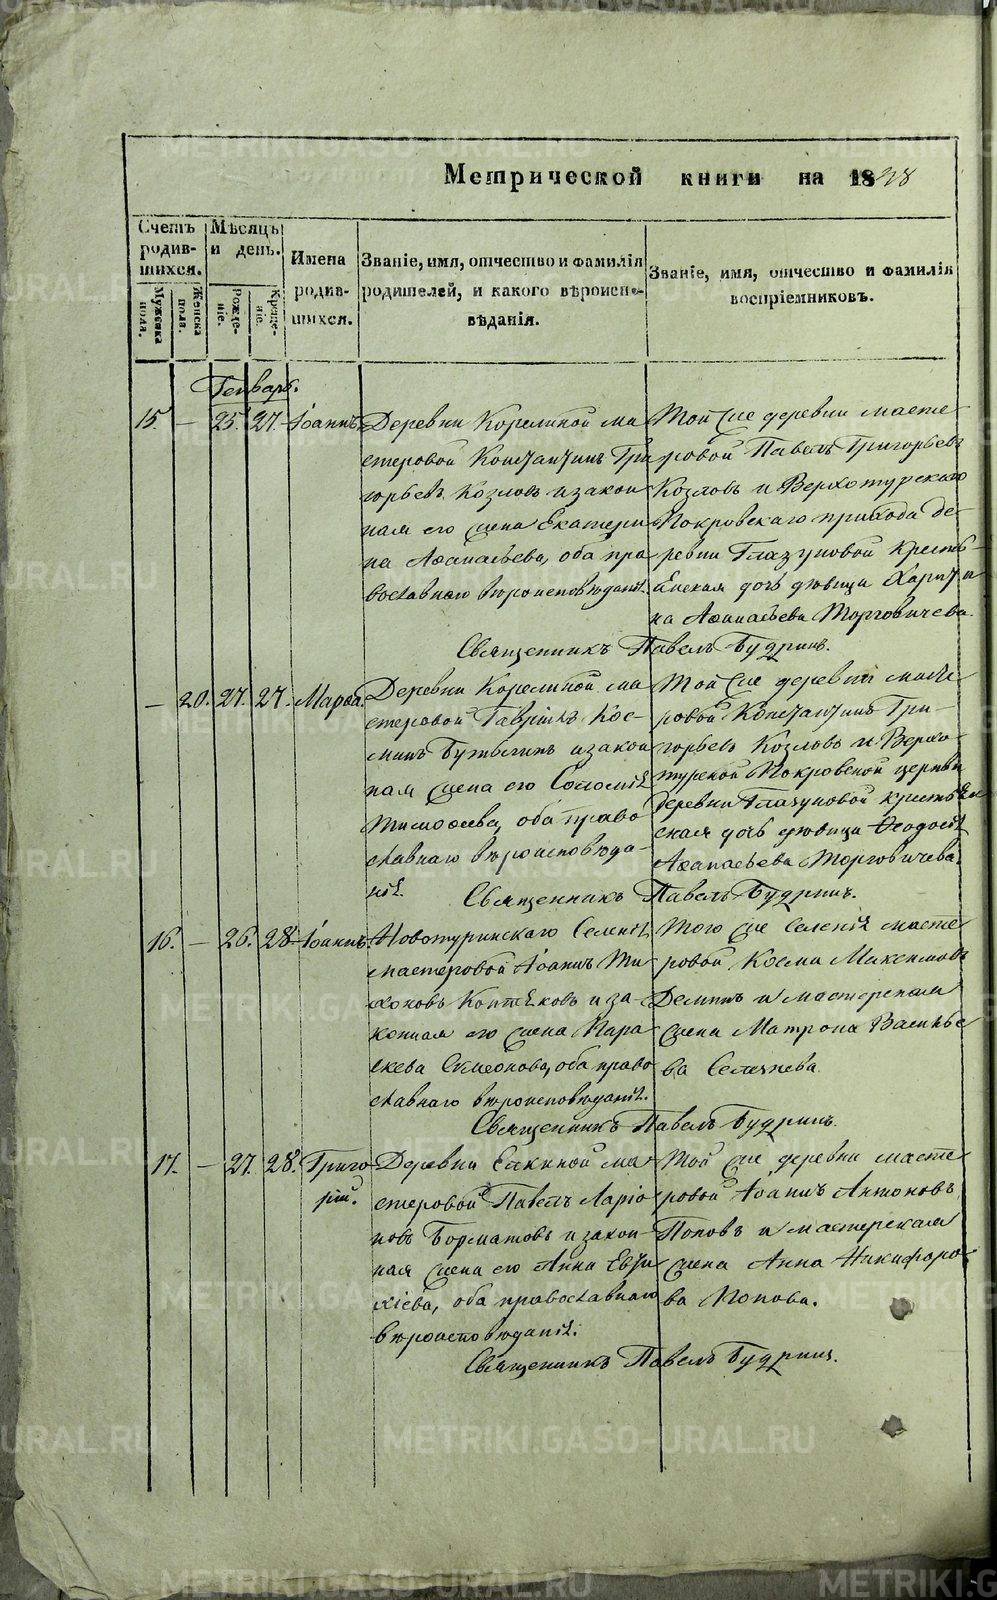 Метрической книги на 1828
Счетъ родив-шихся.
Мужеска пола.
Женска пола.
Мѣсяцъ и день.
Рожде-ніе.
Креще-ніе.
Имена родив-шихся.
Званіе, имя, отчество и фамилія родителей, и какого вѣроиспо-вѣданія.
Званіе, имя, отчество и фамилія воспріемниковъ.
Генварь.
15. — 25. 27. Іоаннъ.
Деревни Корелиной ма-
стеровой Константинъ Гри
горьевъ Козловъ и закон
ная его жена Екатери
на Афанасьева, оба пра
вославнаго вѣроисповѣданія.
Той же деревни масте-
ровой Павелъ Григорьевъ
Козловъ и Верхотурскаго
Покровскаго прихода де-
ревни Глазуновой кресть-
янская дочь дѣвица Харити
на Афанасьева Торговичева.
Священникъ Павелъ Будринъ.
— 20. 27. 27. Марѳа.
Деревни Корелиной ма-
стеровой Гавріилъ Кос-
минъ и закон
ная жена его Соломія
Тимофеева, оба право
славнаго вѣроисповѣда-
нія.
Той же деревни масте-
ровой Константинъ Гри-
горьевъ Козловъ и Верхо-
турской Покровской церкви
деревни Глазуновой крестьян
ская дочь дѣвица Ѳеодосія
Афанасьева Торговичева.
Священникъ Павелъ Будринъ.
16. — 26. 28. Іоаннъ.
Новотуринскаго Селенія
мастеровой Іоаннъ Ти
хоновъ Коптяковъ и за-
конная его жена Пара
скева Симеонова, оба право
славнаго вѣроисповѣданія.
Того же селенія масте-
ровой Косма Максимовъ
Деминъ и мастерская
жена Матрона Василье
ва
Священникъ Павелъ Будринъ.
17. — 27. 28. Григо
рій.
Деревни Елкиной ма-
стеровой Павелъ Ларіо
новъ Борматовъ и закон-
ная жена его Анна Евти
хіева, оба православнаго
вѣроисповѣданія.
Той же деревни масте
ровой Іоаннъ Антоновъ
Поповъ и мастерская
жена Анна Никифоро-
ва Попова.
Священникъ Павелъ Будринъ.
METRIKI.GASO-URAL.RU